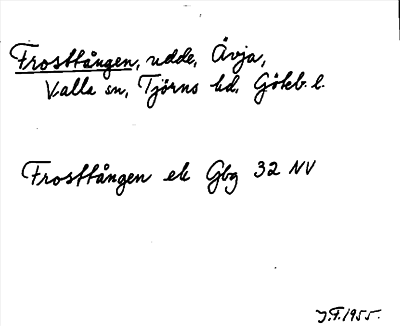 Frosttången, udde, Åvja,
Valla sn, Tjörns hd, Göteb. l.
Frosttången ek Gbg 32 NV
J.F. 1955.